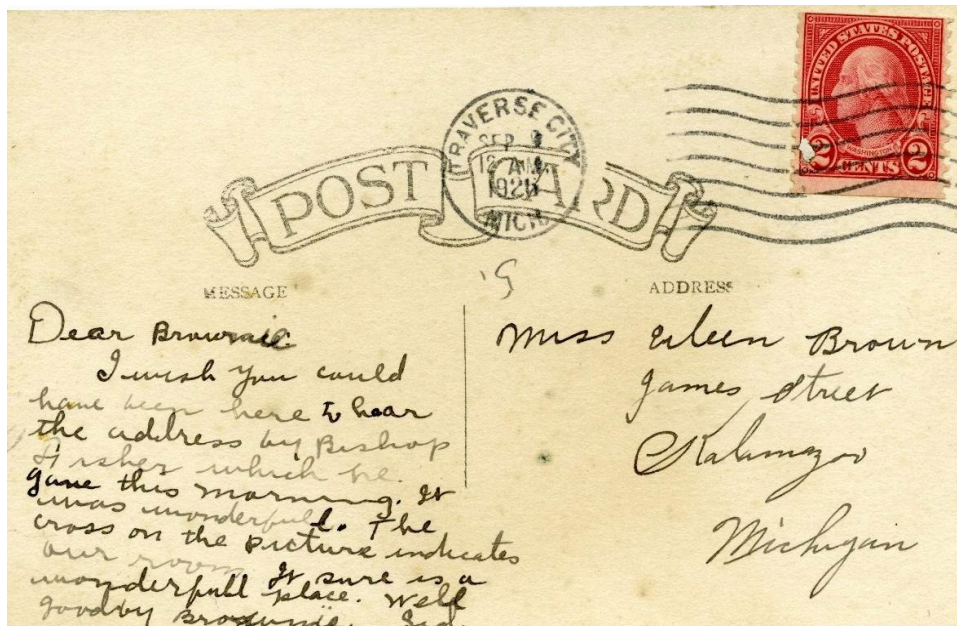 UNITED STATES POSTAGE
WASHINGTON
2 CENTS 2
TRAVERSE CITY
SEP
12 AM
MICH.
POST CARD
MESSAGE
ADDRESS
Dear Brownie
I wish you could
have been here to hear
the address by Bishop
Fisher which he
gave this morning. It
was wonderfull. The
cross on the picture indicates
our room It sure is a
wonderfull place. Well
goodby Brownie.
Miss Eileen Brown
James Street
Kalamazoo
Michigan